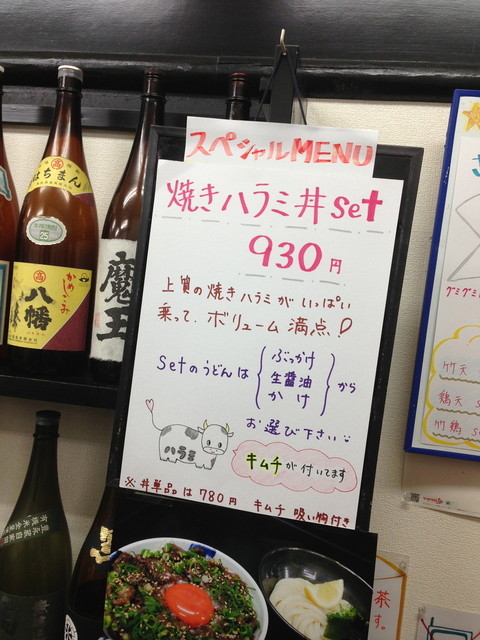 スペシャルMENU
焼きハラミ丼set
930円
上質の焼きハラミがいっぱい
乗って、ボリューム満点!
setのうどんは
ぶっかけ
生醤油
かけ
から
お選び下さい
ハラミ
キムチが付いてます
※丼単品は780円 キムチ 吸い物付き
はちまん
高
25
高
かめしこみ
八幡
魔王
グミグミ
竹天
鶏天
竹鶏
茶
す。